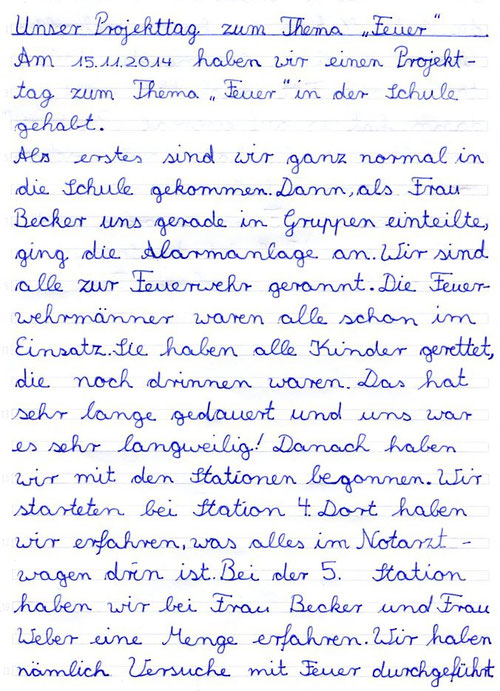 Unser Projekttag zum Thema „Feuer"
Am 15.11.2014 haben wir einen Projekt-
tag zum Thema „Feuer" in der Schule
gehabt.
Als erstes sind wir ganz normal in
die Schule gekommen. Dann, als Frau
Becker uns gerade in Gruppen einteilte,
ging die Alarmanlage an. Wir sind
alle zur Feuerwehr gerannt. Die Feuer-
wehrmänner waren alle schon im
Einsatz. Sie haben alle Kinder gerettet,
die noch drinnen waren. Das hat
sehr lange gedauert und uns war
es sehr langweilig! Danach haben
wir mit den Stationen begonnen. Wir
starteten bei Station 4. Dort haben
wir erfahren, was alles im Notarzt-
wagen drin ist. Bei der 5. Station
haben wir bei Frau Becker und Frau
Weber eine Menge erfahren. Wir haben
nämlich Versuche mit Feuer durchgeführt